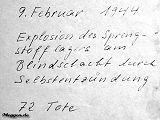 9. Februar 1944
Explosion des Spreng-
stofflagers am
Blindschacht durch
Selbstentzündung
72 Tote
Meggen.de